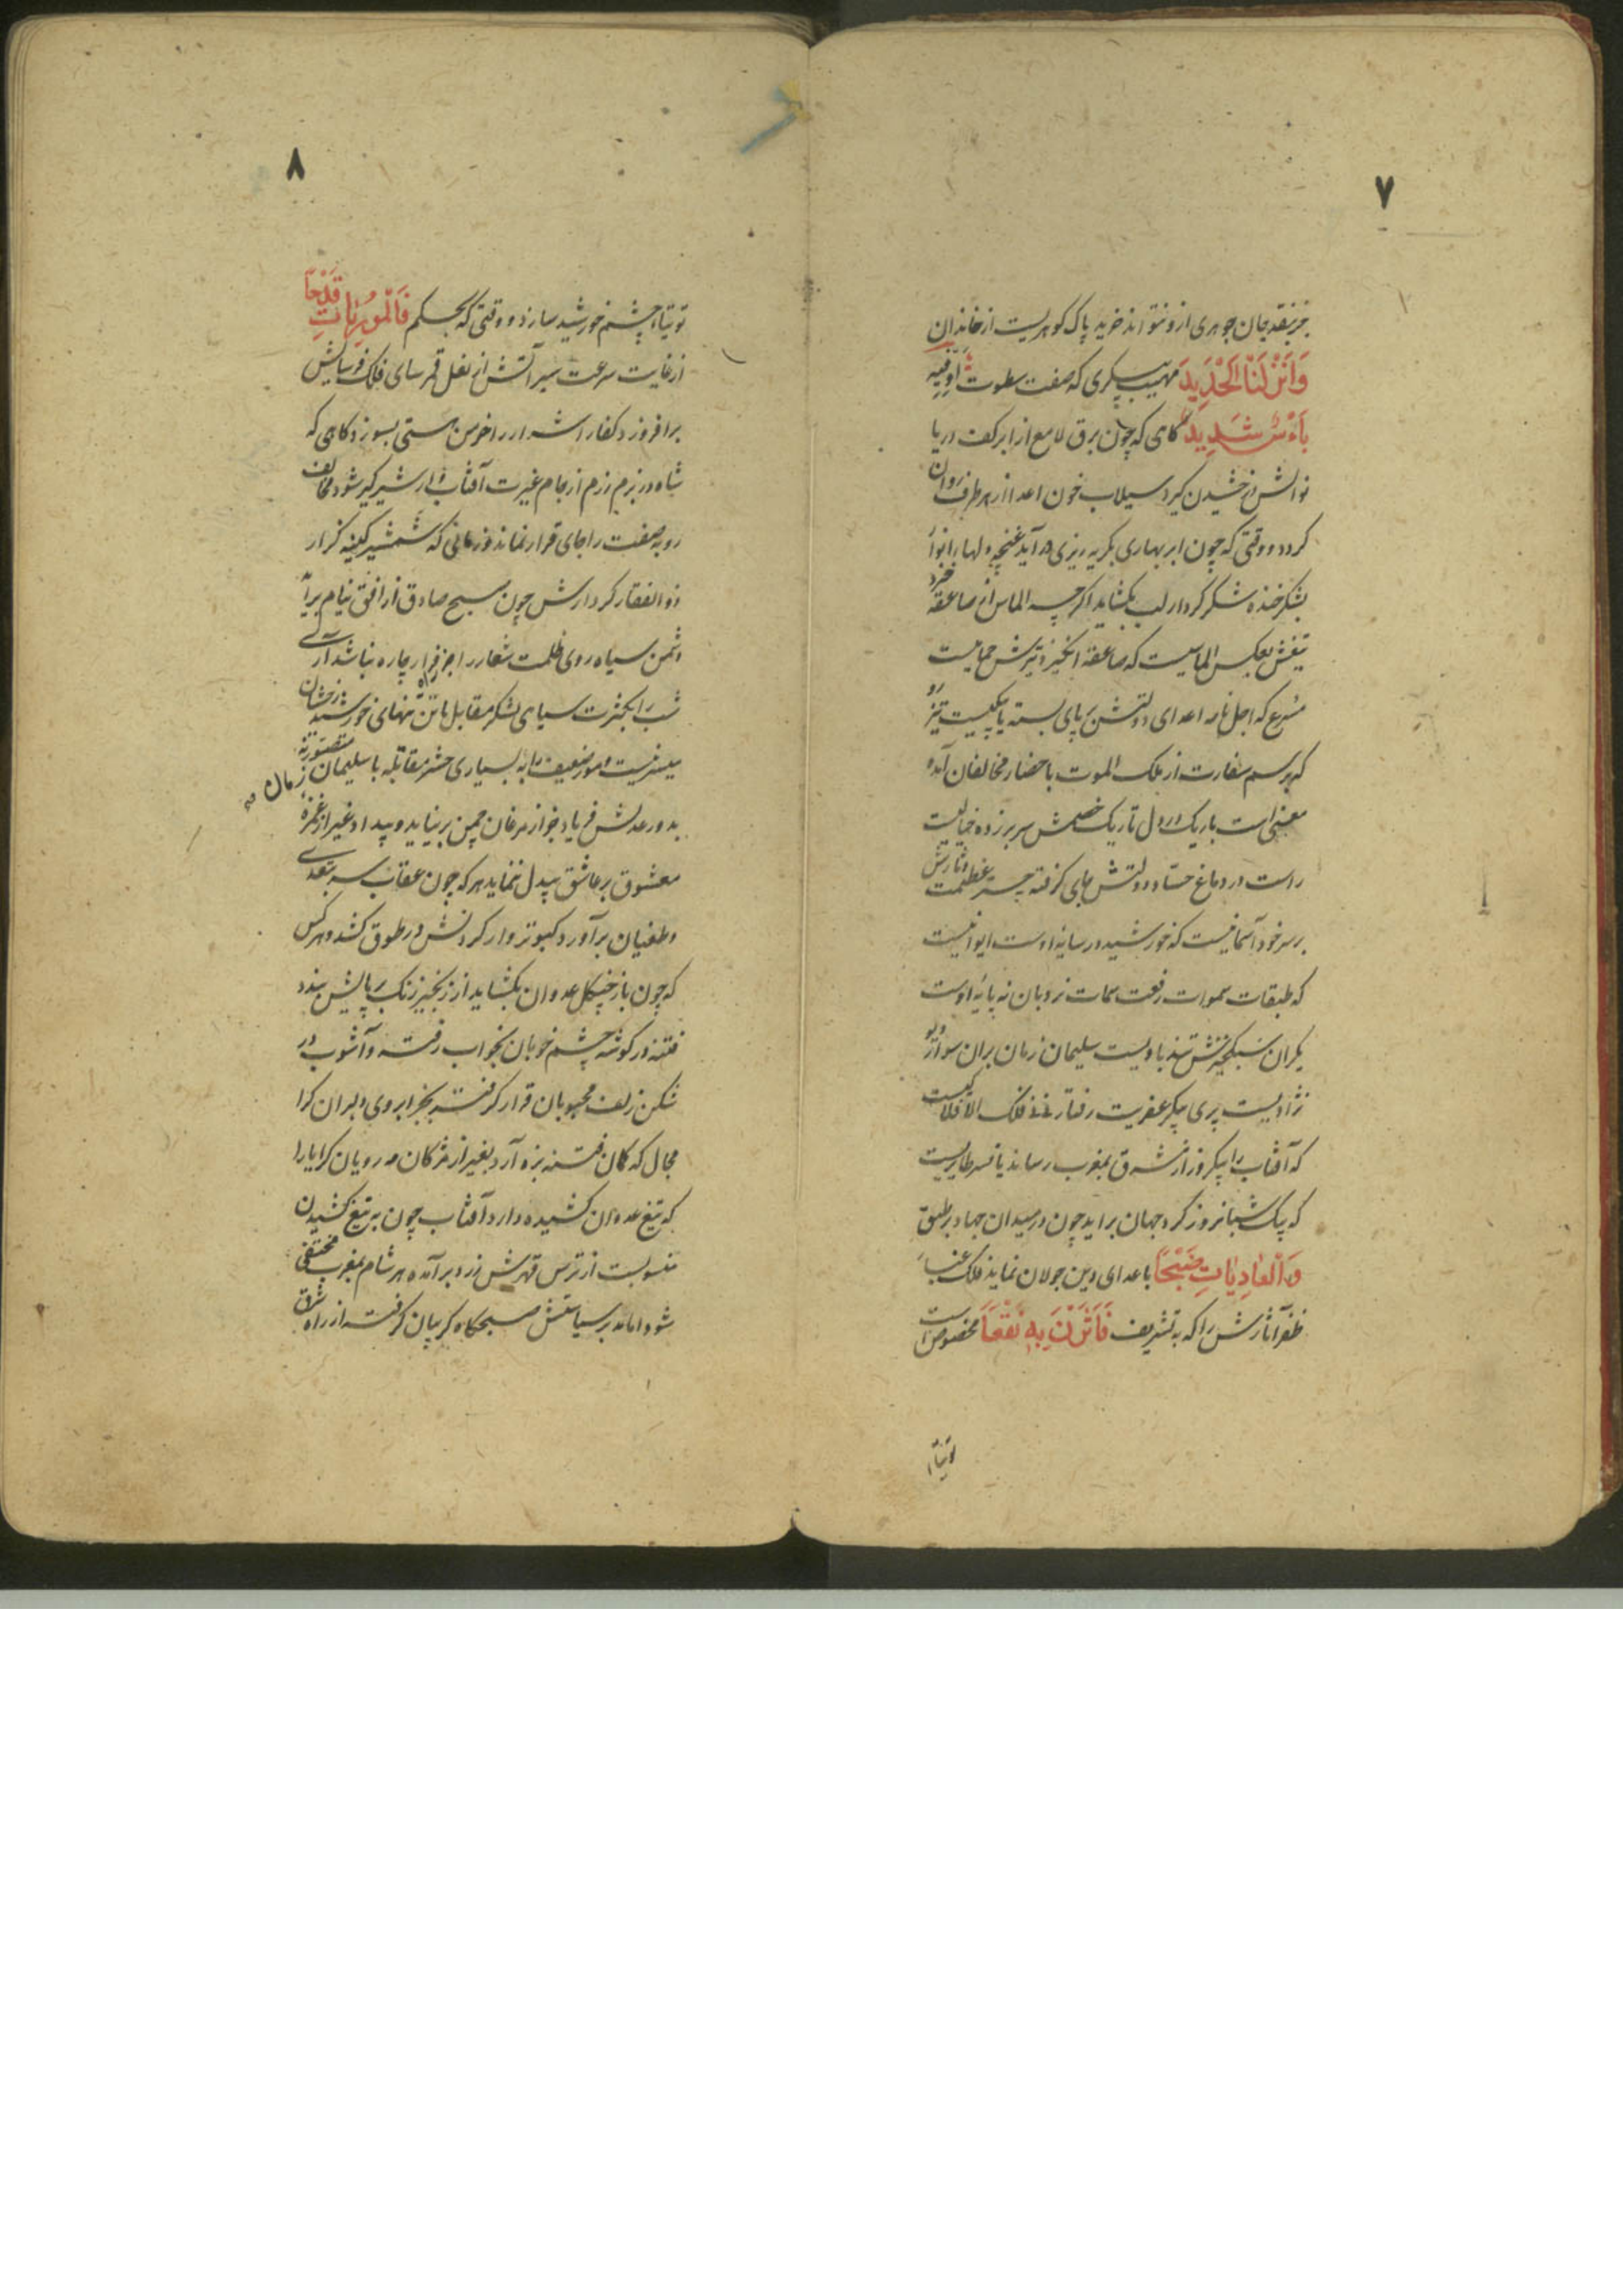 ۷
جز بنقد جان جوهری ازو نتواند خرید پاک کوهریست از خاندان
وَاَنْزَلْنَا الْحَدِیدَ مهیب پیکری که صفت سطوت او فِیهِ
بَاْسٌ شَدِیدٌ کاهی که چون برق لامع از ابر کف دریا
نوالش درخشیدن کیرد سیلاب خون اعدا از هر طرف روان
کردد و وقتی که چون ابر بهاری بکریه ریزی در آید غنچهٔ دلها را
بشکر خنده شکر کردار لب بکشاید اکر چه الماس از صاعقه خیزد
تیغش بعکس الماسیست که صاعقه انکیزد تیرش حمامیست
مسرع که اجل نامه اعدای دولتش بر پای بسته یا پیکیست تیزرو
که برسم سفارت از ملک الموت باحضار مخالفان آمده
معنی است باریک در دل تاریک خصمش سر برزده خیالیست
راست در دماغ حسّاد دولتش جای کرفته چتر عظمت دثارش
بر سر خود آسمانیست که خورشید در سایهٔ اوست ایوانیست
که طبقات سموات رفعت سمات نردبان نه پایهٔ اوست
یکران سبکخیزش تند بادیست سلیمان زمان بران سوار دیو
نژادیست پری پیکر عفریت رفتار نی نی فلک الافلاکیست
که آفتاب را بیکروز از مشرق بمغرب رساند یا نسر طایریست
که بیک شبانروز کرد جهان براید چون در میدان جهاد بر طبق
وَالْعَادِیَاتِ ضَبْحًا با اعدای دین جولان نماید فلک غبار
ظفر آثارش را که به تشریف فَاَثَرْنَ بِهِ نَقْعًا مخصوص است
توتیاء
۸
توتیاء چشم خورشید سازد و وقتی که بحکم فَالْمُورِیَاتِ قَدْحًا
از غایت سرعت سیر آتش از نعل قمر سای فلک فرسایش
برافروزد کفار اشرار را خرمن هستی بسوزد کاهی که
شاه در بزم رزم از جام غیرت آفتاب وار شیر کیر شود مخالف
روبه صفت را جای قرار نماند و زمانی که شمشیر کینه کزار
ذوالفقار کردارش چون صبح صادق از افق نیام برآید
دشمن سیاه روی ظلمت شعار را جز فرار چاره نباشد آری
شب را بکثرت سیاهی لشکر مقابل با تن تنهای خورشید درخشان
میسر نیست و مور ضعیف را به بسیاری حشر مقاتله با سلیمان زمان متصور نه
بدور عدلش فریاد جز از مرغان چمن بر نیاید و بیداد غیر از غمزه
معشوق بر عاشق بیدل ننماید هر که چون عقاب سر بتعدی
و طغیان برآورد کبوتر وار کردنش در طوق کشد و هر کس
که چون باز چنکل عدوان بکشاید از زنجیر زنک بر پایش بندد
فتنه در کوشه چشم خوبان بخواب رفته و آشوب در
شکن زلف محبوبان قرار کرفته بجز ابروی دلبران کرا
مجال که کمان فتنه بزه آرد بغیر از مژکان مه رویان کرا یارا
که تیغ عدوان کشیده دارد آفتاب چون به تیغ کشیدن
منسوبست از ترس قهرش زرد برآمده هر شام بمغرب مختفی
شود اما مه بر سیاستش صبحکاه کریبان کرفته از راه شرق